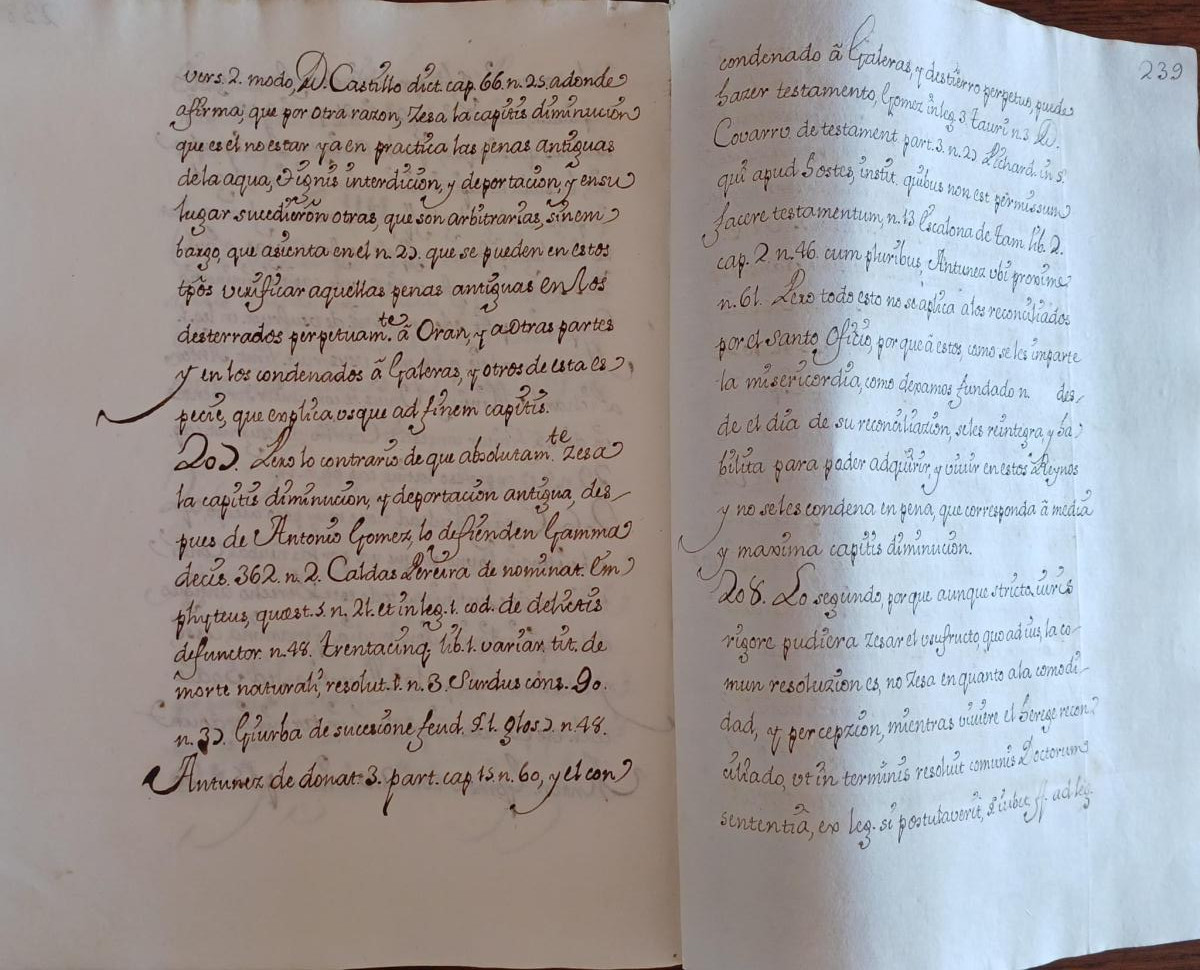 vers. 2. modo, D. Castillo dict. cap. 66. n. 25. adonde
afirma, que por otra razon, zesa la capitis diminución
que es el no estar ya en practica las penas antiguas
de la aqua, et ignis interdicion, y deportacion, y en su
lugar sucedieron otras, que son arbitrarias, sin em
bargo, que asienta en el n. 27. que se pueden en estos
tpõs verificar aquellas penas antiguas en los
desterrados perpetuam.te ã Oran, y a otras partes
y en los condenados ã Galeras, y otros de esta es
pecie, que explica usque ad finem capitis.
207. Pero lo contrario de que absolutam.te zesa
la capitis diminucion, y deportacion antigua, des
pues de Antonio Gomez, lo defienden Gamma
decis. 362. n. 2. Caldas Pereira de nominat. Em
phyteus, quæst. 5. n. 21. et in leg. 1. cod. de delictis
defunctor. n. 48. trentacinq. lib. 1. variar. tit. de
morte naturali, resolut. 1. n. 3. Surdus cons. 90.
n. 37. Giurba de sucesione feud. §. 1. glos. 7. n. 48.
Antunez de donat. 3. part. cap. 15. n. 60, y el con
239
condenado ã Galeras, y destierro perpetuo, puede
hazer testamento, Gomez in leg. 3. tauri n. 3. D.
Covarru de testament. part. 3. n. 27 Pichard. in §.
qui apud hostes, instit. quibus non est permissum
facere testamentum, n. 13 Escalona de tam lib. 2.
cap. 2. n. 46. cum pluribus, Antunez ubi proxime
n. 61. Pero todo esto no se aplica a los reconciliados
por el Santo Oficio, por que ã estos, como se les imparte
la misericordia, como dexamos fundado n. des
de el dia de su reconciliazion, se les reintegra, y ha
bilita para poder adquirir, y vivir en estos Reynos
y no se les condena en pena, que corresponda ã media
y maxima capitis diminucion.
208. Lo segundo, por que aunque stricto iuris
rigore pudiera zesar el usufructo, quo ad ius, la co
mun resoluzion es, no zesa en quanto a la comodi
dad, y percepzion, mientras viviere el herege recon
ciliado, ut in terminis resoluit comunis Doctorum
sententia, ex leg. si postulaverit, §. iubet, ff. ad leg.